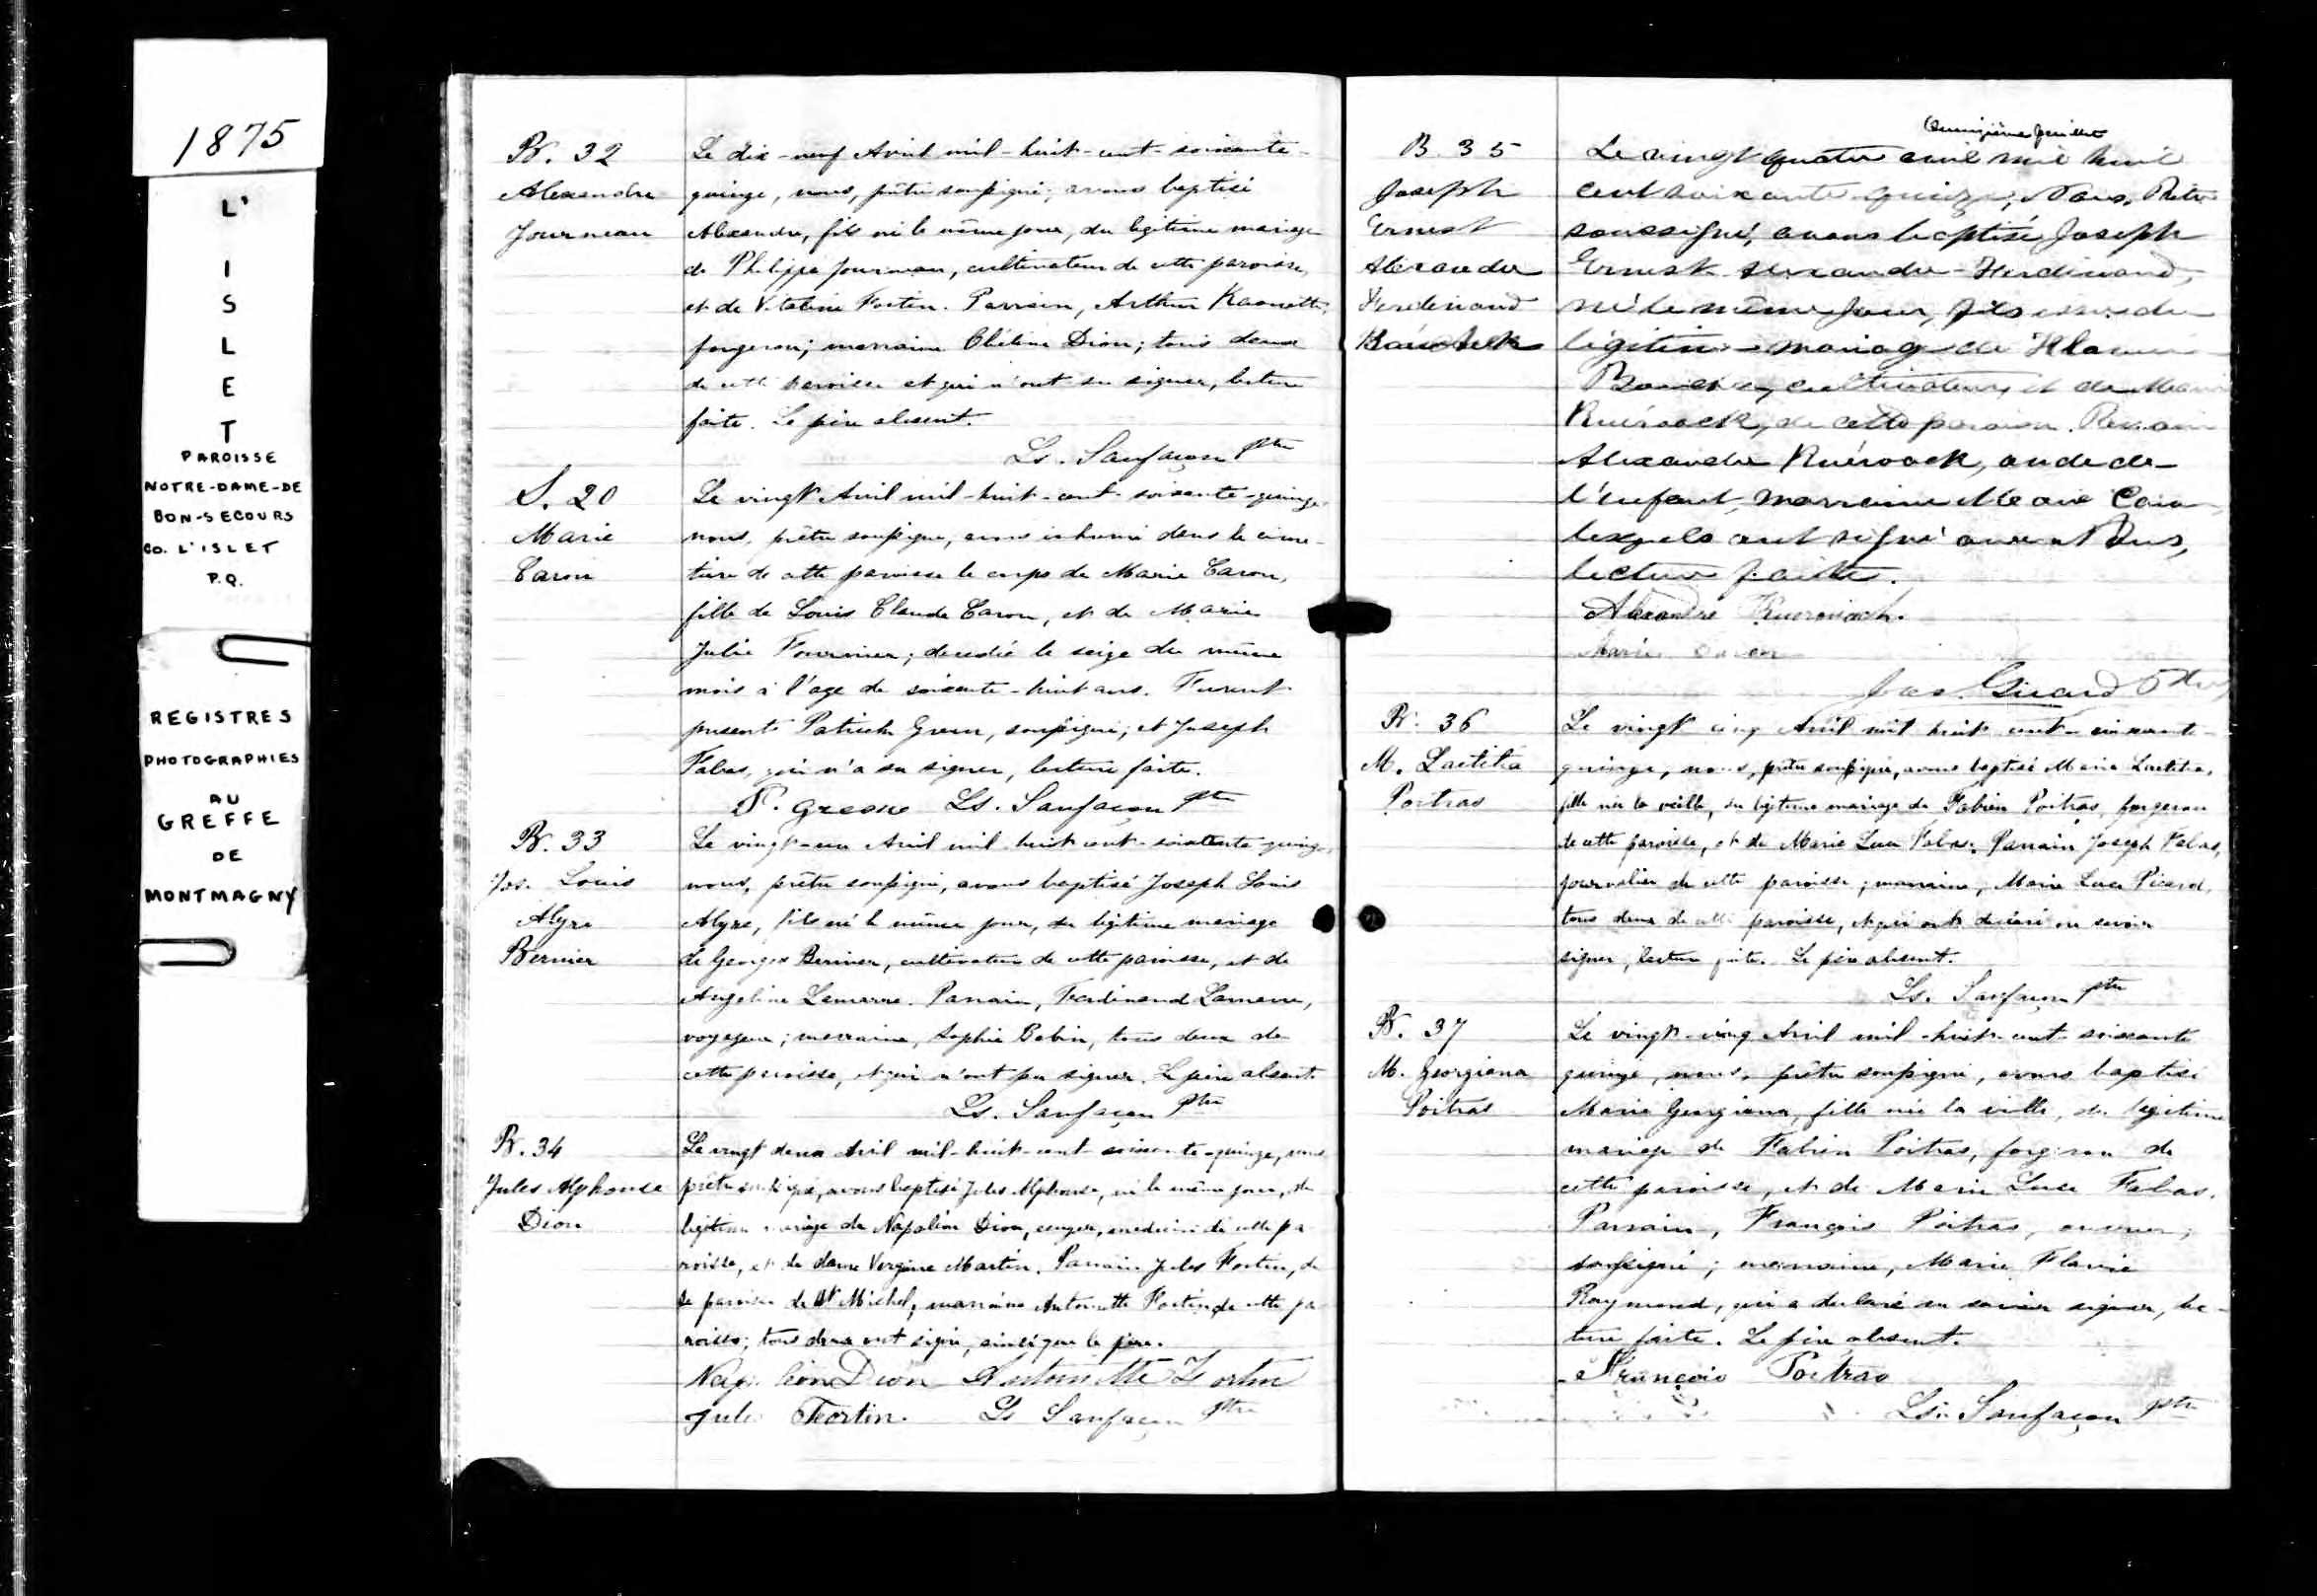 1875
L'
I
S
L
E
T
PAROISSE
NOTRE-DAME-DE
BON-SECOURS
CO. L'ISLET
P.Q.
REGISTRES
PHOTOGRAPHIES
AU
GREFFE
DE
MONTMAGNY
B. 32
Alexandre
Journeau
Le dix-neuf Avril mil-huit-cent-soixante-
quinze, nous, prêtre soussigné, avons baptisé
Alexandre, fils né le même jour, du légitime mariage
de Philippe Journeau, cultivateur de cette paroisse,
et de Vitaline Fortin. Parrain, Arthur
forgeron; marraine Dion; tous deux
de cette paroisse et qui n'ont su signer, lecture
faite. Le père absent.
Ls. Sanfaçon Ptre
S. 20
Marie
Caron
Le vingt Avril mil-huit-cent-soixante-quinze
nous, prêtre soussigné, avons inhumé dans le cime-
tière de cette paroisse le corps de Marie Caron,
fille de Louis Claude Caron, et de Marie
Julie Fournier; décédée le seize du même
mois à l'age de soixante-huit ans. Furent
présents Patrick Green, soussigné; et Joseph
Fabas, qui n'a su signer, lecture faite.
P. Ls. Sanfaçon Ptre
B. 33
Jos. Louis
Alyre
Bernier
Le vingt-un Avril mil-huit-cent-soixante-quinze,
nous, prêtre soussigné, avons baptisé Joseph Louis
Alyre, fils né le même jour, du légitime mariage
de Georges Bernier, cultivateur de cette paroisse, et de
Angeline Lamarre. Parrain, Ferdinand Lamarre,
voyageur; marraine, Sophie Babin, tous deux de
cette paroisse, et qui n'ont pu signer. Le père absent.
Ls. Sanfaçon Ptre
B. 34
Jules Alphonse
Dion
Le vingt deux Avril mil-huit-cent-soixante-quinze, nous
prêtre soussigné, avons baptisé Jules Alphonse, né le même jour, du
légitime mariage de Napoléon Dion, médecin de cette pa-
roisse, et de dame Virginie Martin. Parrain Jules Fortin, de
la paroisse de St Michel, marraine Antoinette Fortin de cette pa-
roisse; tous deux ont signé, ainsi que le père.
Napoléon Dion Antoinette Fortin
Jules Fortin. Ls Sanfaçon Ptre
B. 35
Joseph
Ernest
Alexandre
Ferdinand
Quinzième feuillet
Le vingt quatre avril mil huit
cent soixante quinze, Nous, Prêtre
soussigné, avons baptisé Joseph
Ernest Alexandre Ferdinand,
né le même jour, fils issu du
légitime mariage de
cultivateur, et de Marie
de cette paroisse. Parrain
Alexandre oncle de
l'enfant, marraine Marie Caron
lesquels ont signé avec Nous,
lecture faite.
Alexandre
Marie Caron
Girard Ptre
B. 36
M. Laetitia
Poitras
Le vingt cinq Avril mil huit-cent-soixante-
quinze, nous, prêtre soussigné, avons baptisé Marie Laetitia,
fille née la veille, du légitime mariage de Fabien Poitras, forgeron
de cette paroisse, et de Marie Luce Fabas. Parrain Joseph Fabas,
journalier de cette paroisse; marraine, Marie Luce Picard,
tous deux de cette paroisse, et qui ont déclaré ne savoir
signer, lecture faite. Le père absent.
Ls. Sanfaçon Ptre
B. 37
M. Georgiana
Poitras
Le vingt-cinq Avril mil-huit-cent-soixante
quinze, nous, prêtre soussigné, avons baptisé
Marie Georgiana, fille née la veille, du légitime
mariage de Fabien Poitras, forgeron de
cette paroisse, et de Marie Luce Fabas.
Parrain, François Poitras,
soussigné; marraine, Marie Flavie
Raymond, qui a déclaré ne savoir signer, lec-
ture faite. Le père absent.
François Poitras
Ls. Sanfaçon Ptre